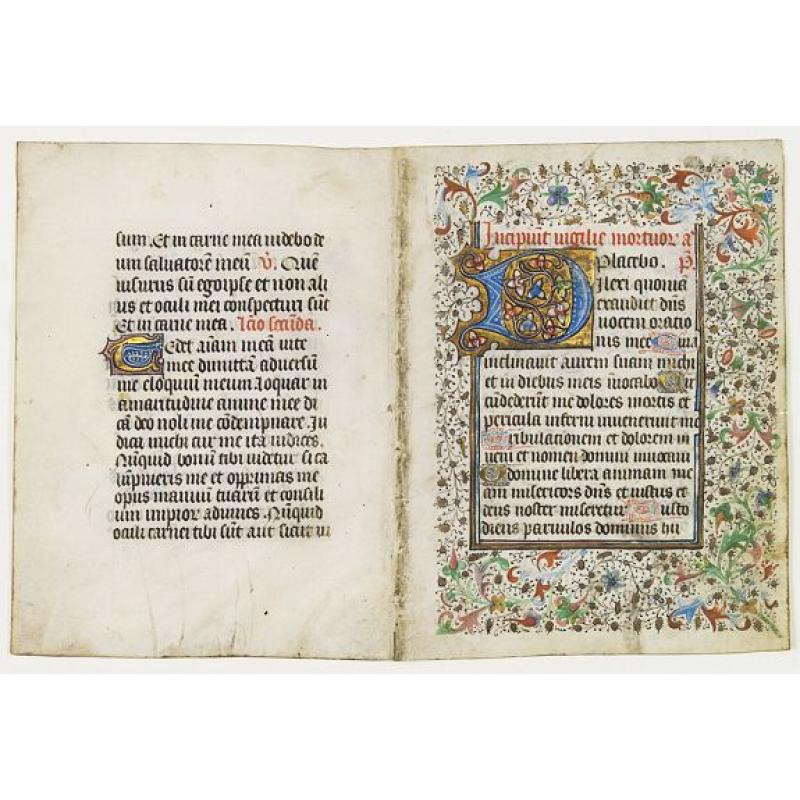 sum. Et in carne mea videbo de
um salvatorē meū V. Quē
visurus sū ego ipse et non ali
us et oculi mei conspecturi sūt
Et in carne mea. Lc̄io secūda.
Tedet aīam meā vite
mee dimittā adversū
me eloquiū meum loquar in
amaritudine anime mee di
cā deo noli me cōdempnare. In
dica michi cur me ita iudices.
Nūquid bonū tibi videtur si ca
lūpnieris me et opprimas me
opus manuū tuarū et consili
um impior adiuves. Nūquid
oculi carnei tibi sūt aut sicut vi
Incipiūt vigilie mortuor a
Placebo. P.
Dilexi quonia
exaudiet dn̄s
vocem oratio
nis mee Quia
inclinavit aurem suam michi
et in diebus meis invocabo Cir
cūdederūt me dolores mortis et
pericula inferni invenerūt me
Tribulationem et dolorem in
veni et nomen domini invocavi
O domine libera animam me
am misericors dn̄s et iustus et
deus noster miseretur Custo
diens parvulos dominus hu